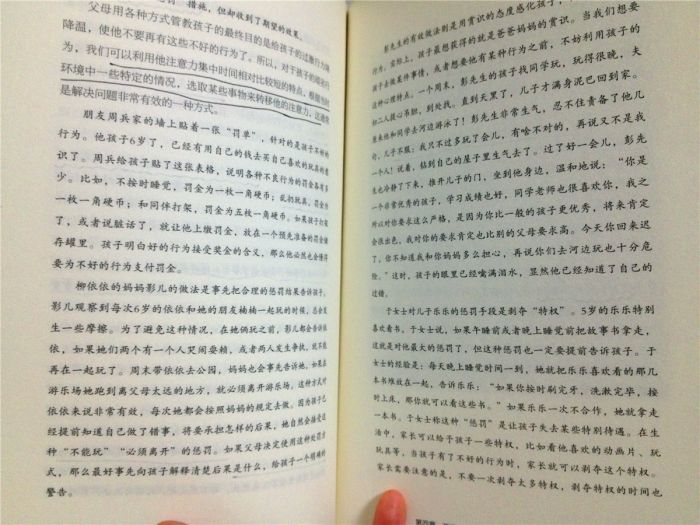 措施，但却收到了期望的效果。
父母用各种方式管教孩子的最终目的是给孩子的过激行为
降温，使他不要再有这些不好的行为了。所以，对于孩子的
我们可以利用他注意力集中时间相对比较短的特点，根据当时
环境中一些特定的情况，选取某些事物来转移他的注意力，这
是解决问题非常有效的一种方式。
朋友周兵家的墙上贴着一张“罚单”，针对的是孩子不好的
行为。他孩子6岁了，已经有用自己的钱去买自己喜欢的玩具的意
识了。周兵给孩子贴了这张表格，说明各种不良行为的罚金各有多
少。比如，不按时睡觉，罚金为一枚角硬币；乱扔玩具，罚金为
一枚一角硬币；和同伴打架，罚金为五枚一角硬币。如果孩子打架
了，或者说脏话了，就让他上缴罚金，放在一个预先准备的罚金储
存罐里。孩子明白好的行为接受奖金的含义，那么他必然也会懂得
要为不好的行为支付罚金。
柳依依的妈妈影儿的做法是事先把合理的惩罚结果告诉孩子。
影儿观察到每次6岁的依依和她的朋友楠楠一起玩的时候，总会发
生一些摩擦。为了避免这种情况，在她俩玩之前，影儿都会告诉依
依，如果她们两个有一个人哭闹耍赖，或者两人发生争执，就不能
再在一起玩了。周末带依依去公园，妈妈也会事先告诉她，如果在
游乐场她跑到离父母太远的地方，就必须离开游乐场。这种方式对
依依来说非常有效，每次她都会按照妈妈的规定去做。因为孩子已
经提前知道自己做了错事，将要承担怎样的后果，她自然会接受这
种“不能玩”“必须离开”的惩罚。如果父母决定使用这种处罚方
式，那么最好事先向孩子解释清楚后果是什么，给孩子一个明确的
警告。
彭先生的有效做法则是用赏识的态度感化孩子，
行为。实际上，孩子最想获得的就是爸爸妈妈的赏识。当我们想要
孩子去做某件事情，或者想要他有某种行为之前，不妨利用孩子的
这种心理特点。一个周末，彭先生的孩子找同学玩，玩得很晚，夫
妇二人提心吊胆，到处找。直到天黑了，儿子才满身泥巴回到家。
原来他和同学去河边游泳了！彭先生非常生气，忍不住责备了他几
句，儿子不服：我只不过多玩了会儿，有啥不对的，再说又不是我
一个人！说着，钻到自己的屋子里生气去了。过了好一会儿，彭先
生也冷静了下来，推开儿子的门，坐到他身边，温和地说：“你是
一个非常优秀的孩子，学习成绩也好，同学老师也很喜欢你，我之
所以对你要求这么严格，是因为你比一般的孩子更优秀，将来肯定
会很出色，我对你的要求肯定也比别的父母要求高。今天你回来迟
了，你不知道我和你妈妈多么担心，再说你们去河边玩也十分危
险。”这时，孩子的眼里已经噙满泪水，显然他已经知道了自己的
过错。
于女士对儿子乐乐的惩罚手段是剥夺“特权”。5岁的乐乐特别
喜欢看书。于女士说，如果午睡前或者晚上睡觉前把故事书拿走，
这就是对他最大的惩罚了，但这种惩罚也一定要提前告诉孩子。于
女士的经验是：每天晚上睡觉时间一到，她就把乐乐喜欢看的那几
本书堆放在一起，告诉乐乐：“如果你按时刷完牙，洗漱完毕，按
时上床，那你就可以看这些书。”如果乐乐一次不合作，她就拿走
一本书。于女士称这种“惩罚”是让孩子失去某些特别待遇。在生
活中，家长可以给予孩子一些特权，比如看他喜欢的动画片、玩
玩具等，当孩子有了不好的行为时，家长就可以剥夺这个特权。
家长需要注意的是，不要一次剥夺太多特权，剥夺特权的时间也